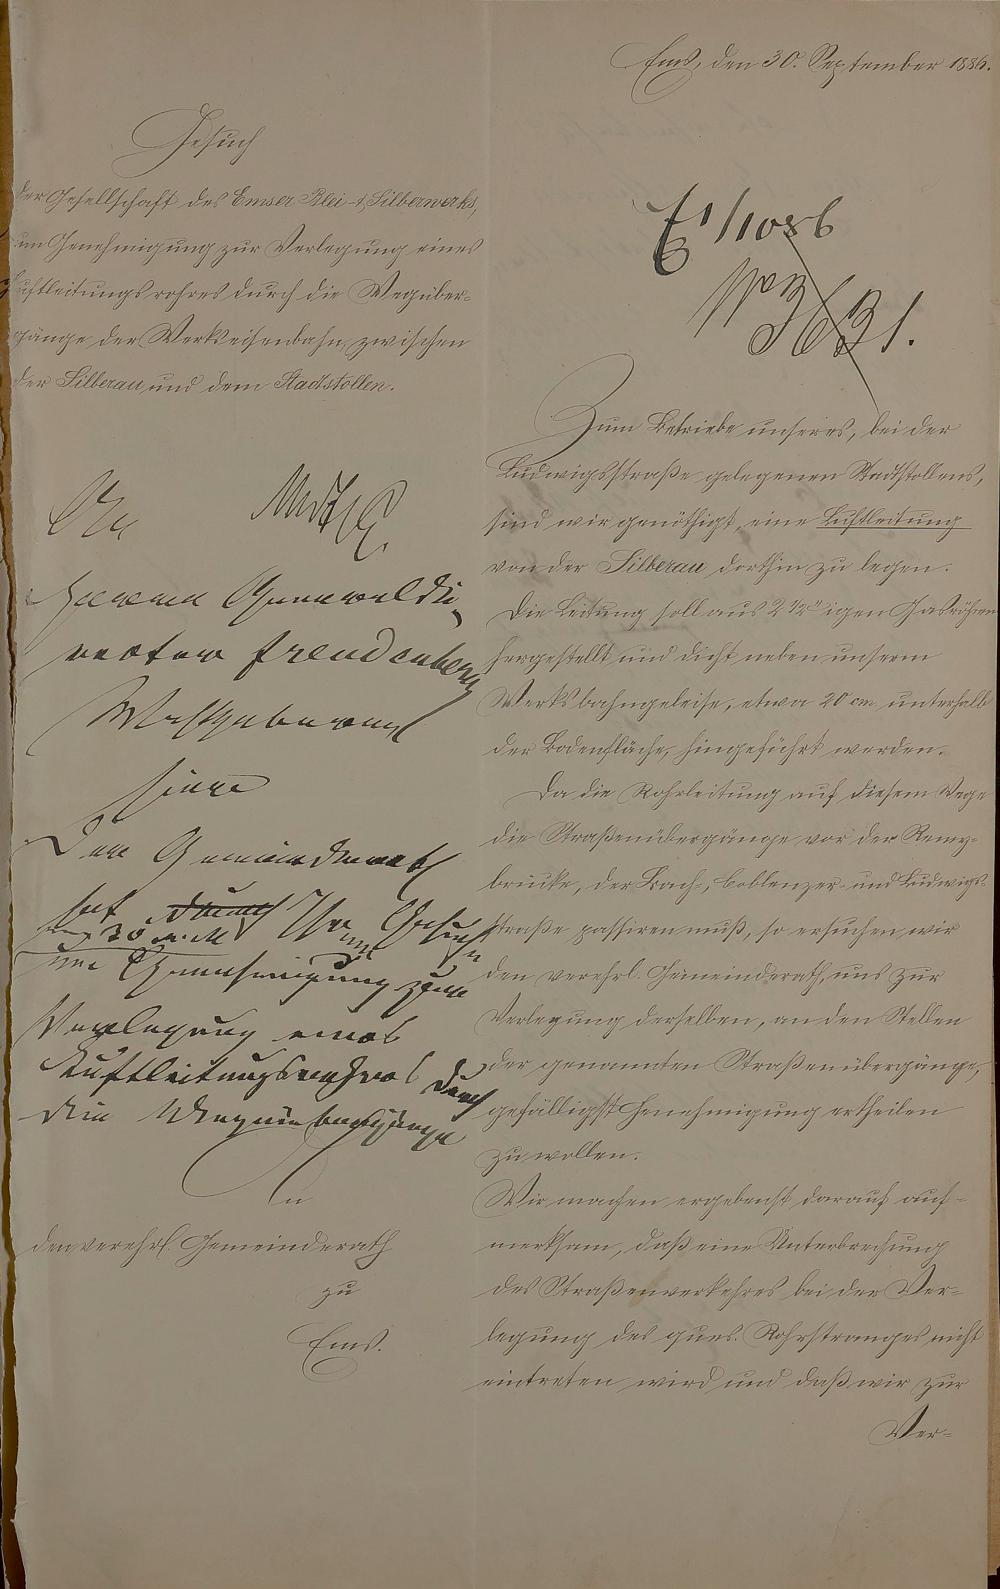 Ems, den 30. September 1886.
Gesuch
der Gesellschaft des Emser Blei- & Silberwerks,
um Genehmigung zur Verlegung eines
Luftleitungsrohres durch die Wegüber-
gänge der Werkseisenbahn, zwischen
der Silberau und dem Stadtstollen.
E 1/10 86
No 3631.
An
Herrn Generaldi-
rector Freudenberg
Wohlgeboren
hier
Der Gemeinderath
hat Ihr Gesuch
vom 30 v. M.
um Genehmigung zur
Verlegung eines
Luftleitungsrohres durch
die Wegeübergänge
An
den verehrl. Gemeinderath
zu
Ems.
Zum Betriebe unseres, bei der
Ludwigsstraße gelegenen Stadtstollens,
sind wir genöthigt, eine Luftleitung
von der Silberau dorthin zu legen.
Die Leitung soll aus 2 1/2" igen Gasröhren
hergestellt und dicht neben unserm
Werksbahngeleise, etwa 20 cm unterhalb
der Bodenfläche, hingeführt werden.
Da die Rohrleitung auf diesem Wege
die Straßenübergänge vor der Remy-
brücke, der Bach-, Coblenzer- und Ludwigs-
straße passiren muß, so ersuchen wir
den verehrl. Gemeinderath, uns zur
Verlegung derselben, an den Stellen
der genannten Straßenübergänge,
gefälligst Genehmigung ertheilen
zu wollen.
Wir machen ergebenst darauf auf-
merksam, daß eine Unterbrechung
des Straßenverkehres bei der Ver-
legung des ques. Rohrstranges nicht
eintreten wird und daß wir zur
Ver-